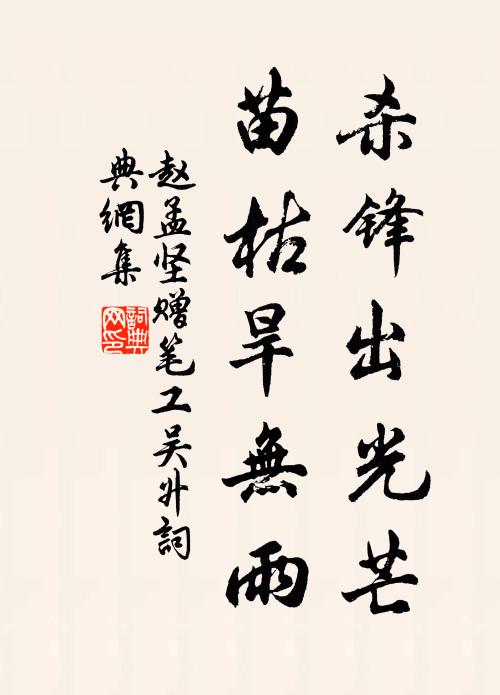 杀锋出光芒
苗枯旱無雨
赵孟坚赠笔工吴升詞
典網集
詞典网印